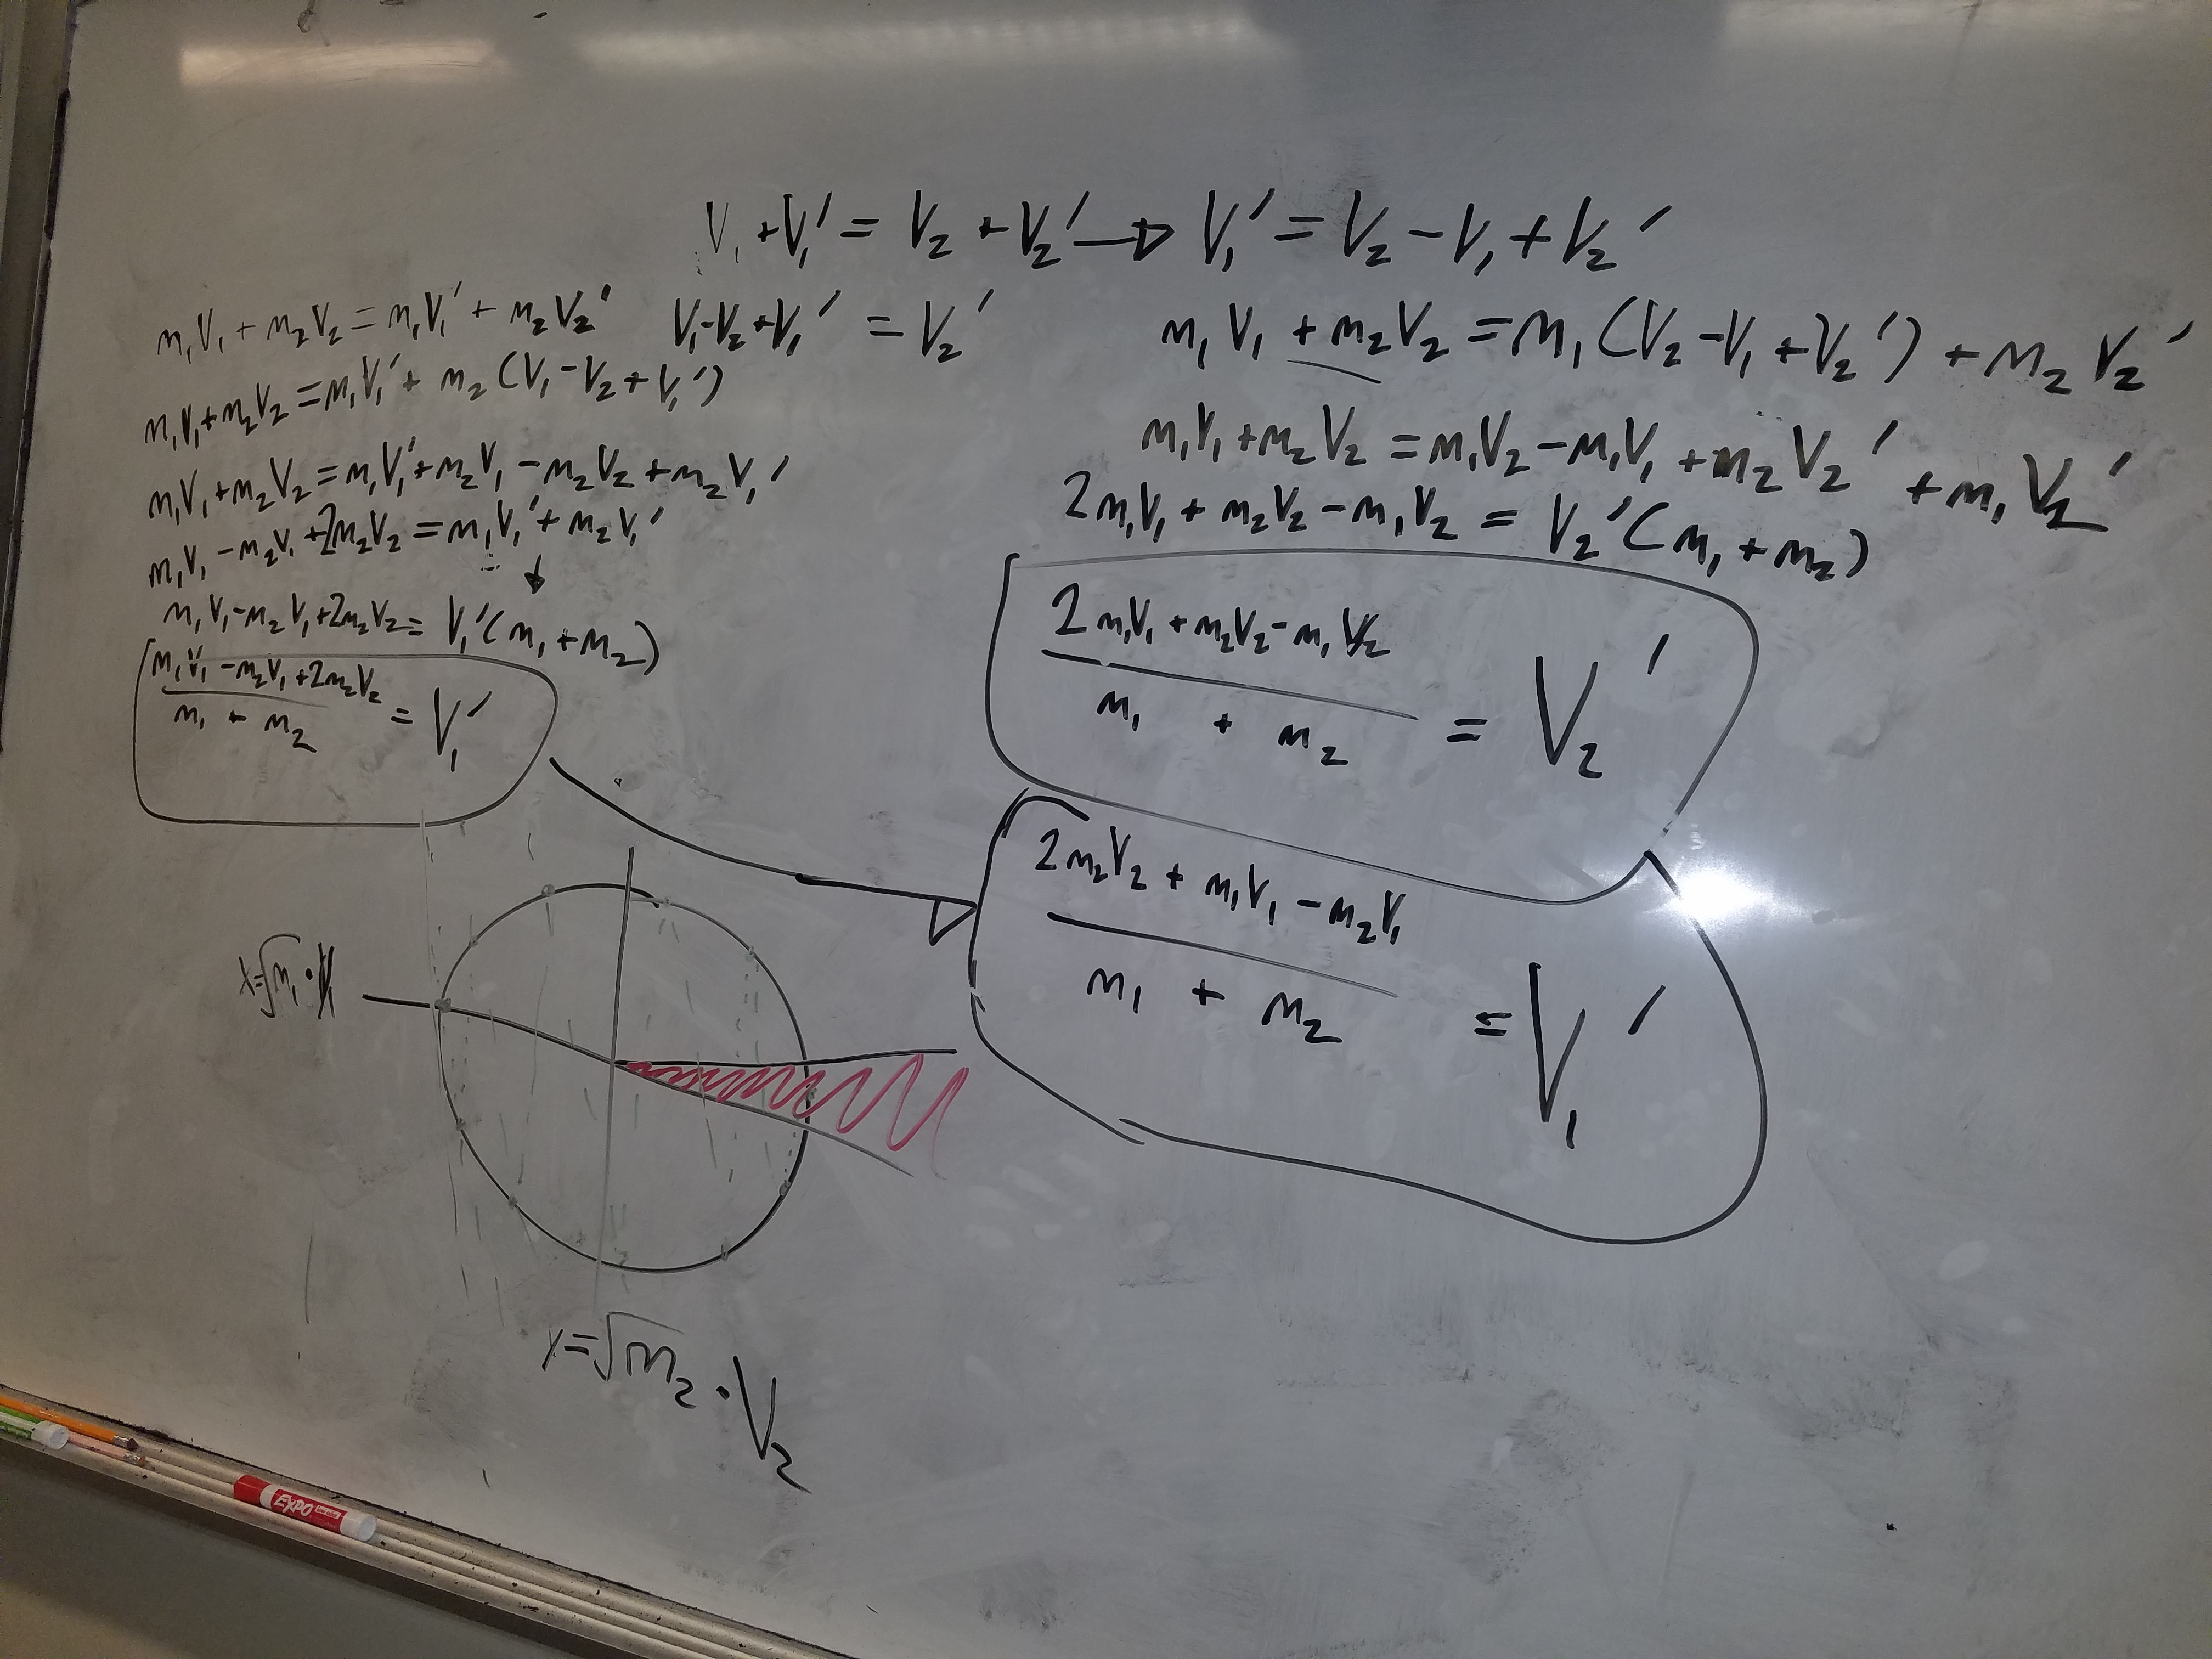 V₁ + V₁' = V₂ + V₂' → V₁' = V₂ - V₁ + V₂'
m₁V₁ + m₂V₂ = m₁V₁' + m₂V₂'
V₁ - V₂ + V₁' = V₂'
m₁V₁ + m₂V₂ = m₁V₁' + m₂(V₁ - V₂ + V₁')
m₁V₁ + m₂V₂ = m₁V₁' + m₂V₁ - m₂V₂ + m₂V₁'
m₁V₁ - m₂V₁ + 2m₂V₂ = m₁V₁' + m₂V₁'
↓
m₁V₁ - m₂V₁ + 2m₂V₂ = V₁'(m₁ + m₂)
m₁V₁ - m₂V₁ + 2m₂V₂
m₁ + m₂ = V₁'
m₁V₁ + m₂V₂ = m₁(V₂ - V₁ + V₂') + m₂V₂'
m₁V₁ + m₂V₂ = m₁V₂ - m₁V₁ + m₂V₂' + m₁V₂'
2m₁V₁ + m₂V₂ - m₁V₂ = V₂'(m₁ + m₂)
2m₁V₁ + m₂V₂ - m₁V₂
m₁ + m₂ = V₂'
2m₂V₂ + m₁V₁ - m₂V₁
m₁ + m₂ = V₁'
x=√m₁ · V₁
y=√m₂ · V₂
EXPO